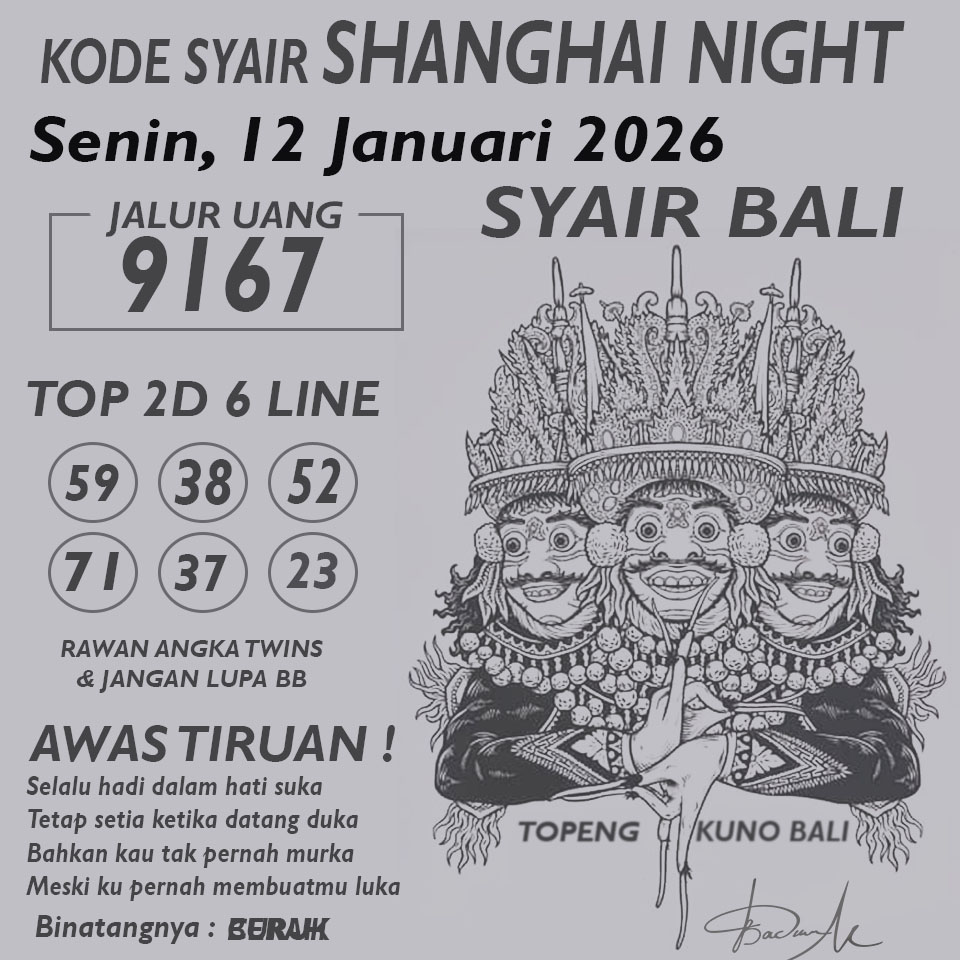 KODE SYAIR SHANGHAI NIGHT
Senin, 12 Januari 2026
SYAIR BALI
JALUR UANG
9167
TOP 2D 6 LINE
59 38 52
71 37 23
RAWAN ANGKA TWINS
& JANGAN LUPA BB
AWAS TIRUAN !
Selalu hadi dalam hati suka
Tetap setia ketika datang duka
Bahkan kau tak pernah murka
Meski ku pernah membuatmu luka
Binatangnya :
TOPENG KUNO BALI